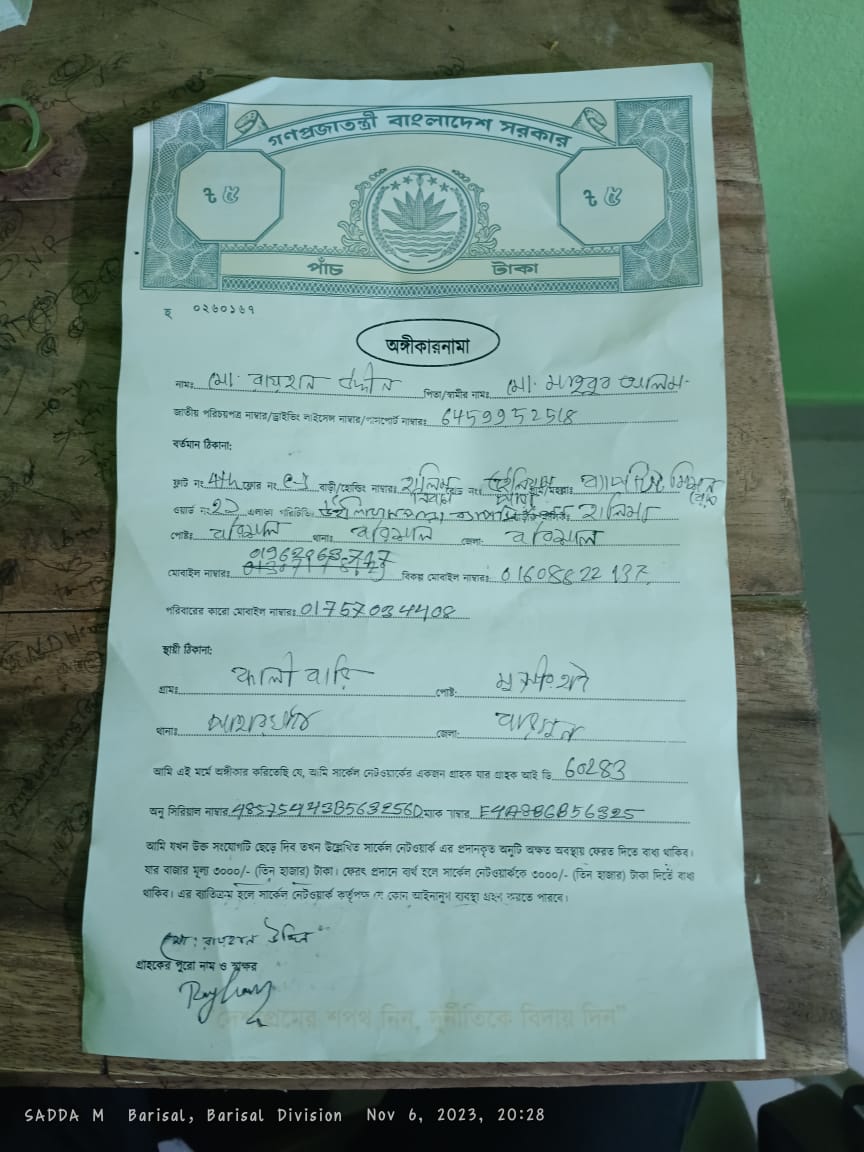 গণপ্রজাতন্ত্রী বাংলাদেশ সরকার
৳ ৫ ৳ ৫
পাঁচ টাকা
হ ০২৬০১৬৭
অঙ্গীকারনামা
নামঃ মো: রায়হান উদ্দীন পিতা/স্বামীর নামঃ মো: মাহবুব আলিম
জাতীয় পরিচয়পত্র নাম্বার/ড্রাইভিং লাইসেন্স নাম্বার/পাসপোর্ট নাম্বারঃ 6459952518
বর্তমান ঠিকানা:
ফ্লাট নং 4th ফ্লোর নং বাড়ী/হোল্ডিং নাম্বারঃ হালিম নং
ওয়ার্ড নং এলাকা পরিচিতিঃ
পোষ্টঃ বরিশাল থানাঃ বরিশাল জেলাঃ বরিশাল
মোবাইল নাম্বারঃ বিকল্প মোবাইল নাম্বারঃ
পরিবারের কারো মোবাইল নাম্বারঃ 01757034408
স্থায়ী ঠিকানা:
গ্রামঃ কালী বাড়ি পোষ্ট:
থানাঃ জেলা:
আমি এই মর্মে অঙ্গীকার করিতেছি যে, আমি সার্কেল নেটওয়ার্কের একজন গ্রাহক যার গ্রাহক আই ডি 60283
অনু সিরিয়াল নাম্বার 48575443B563256D ম্যাক নাম্বার E4A8B6B56325
আমি যখন উক্ত সংযোগটি ছেড়ে দিব তখন উল্লেখিত সার্কেল নেটওয়ার্ক এর প্রদানকৃত অনুটি অক্ষত অবস্থায় ফেরত দিতে বাধ্য থাকিব।
যার বাজার মূল্য ৩০০০/- (তিন হাজার) টাকা। ফেরৎ প্রদানে ব্যর্থ হলে সার্কেল নেটওয়ার্ককে ৩০০০/- (তিন হাজার) টাকা দিতে বাধ্য
থাকিব। এর ব্যতিক্রম হলে সার্কেল নেটওয়ার্ক কর্তৃপক্ষ যে কোন আইনানুগ ব্যবস্থা গ্রহন করতে পারবে।
মো: রায়হান উদ্দিন
গ্রাহকের পুরো নাম ও স্বাক্ষর
"দেশপ্রেমের শপথ নিন, দুর্নীতিকে বিদায় দিন"
SADDA M Barisal, Barisal Division Nov 6, 2023, 20:28